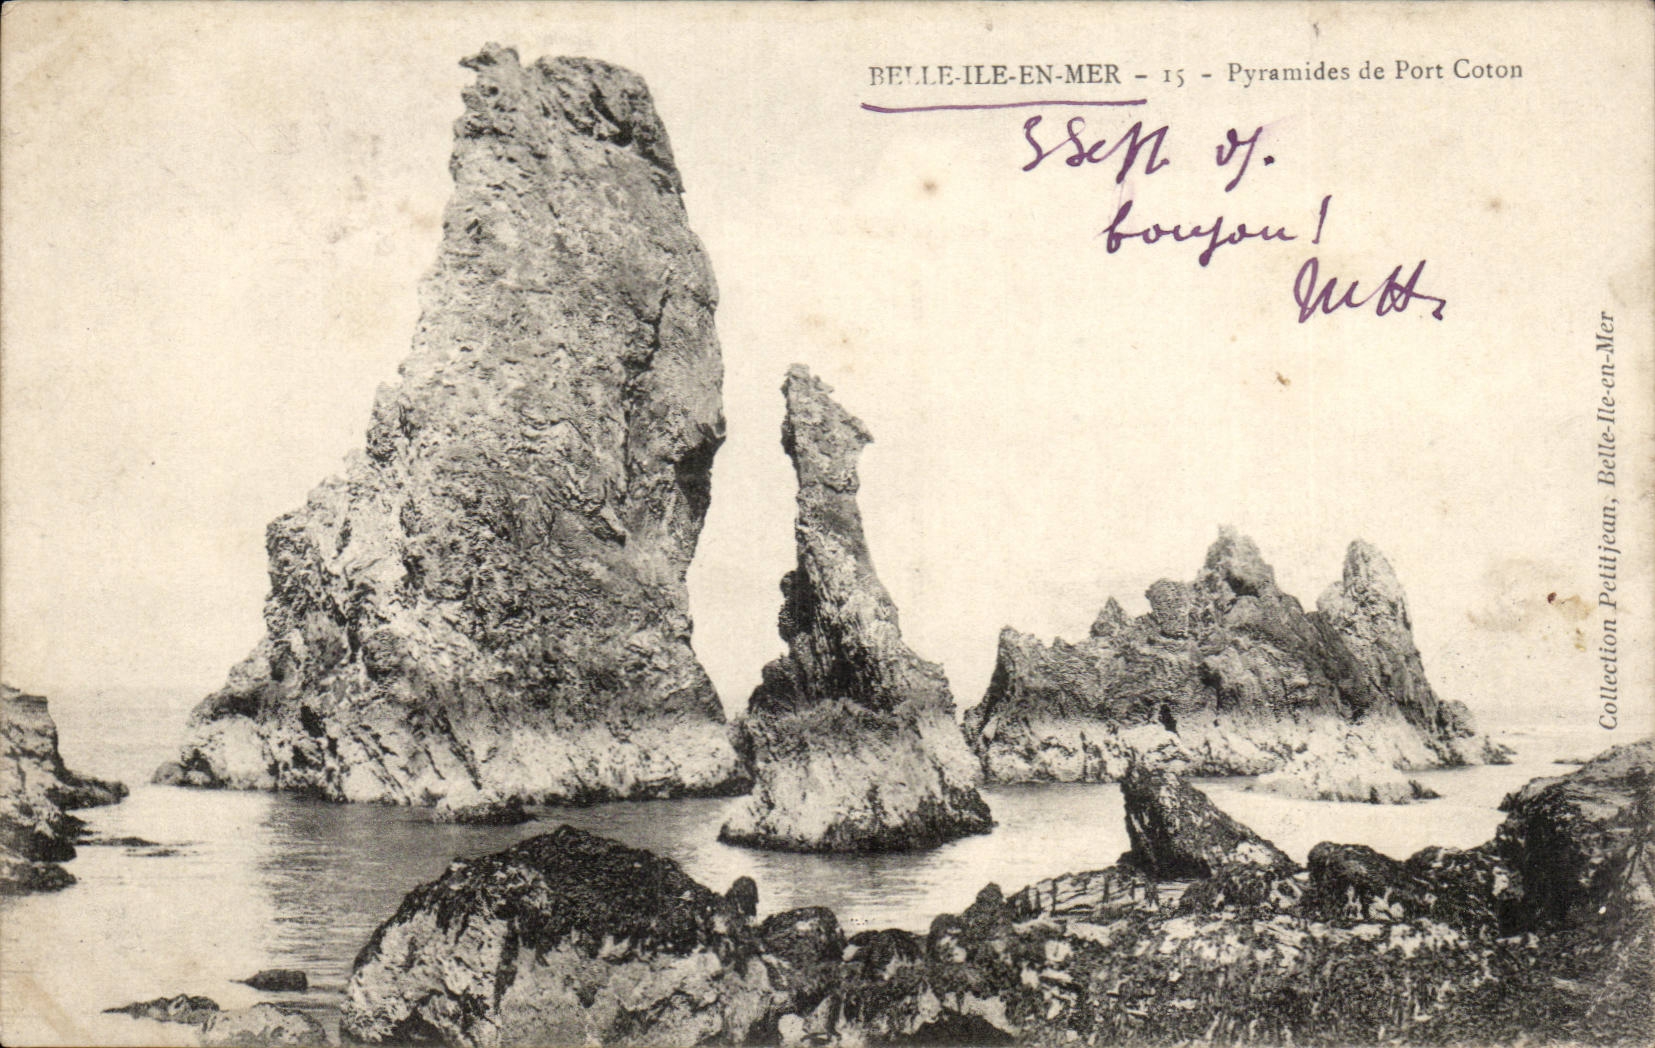 BELLE-ILE-EN-MER - 15 - Pyramides de Port Coton
3 Sept
Collection Petitjean, Belle-Ile-en-Mer